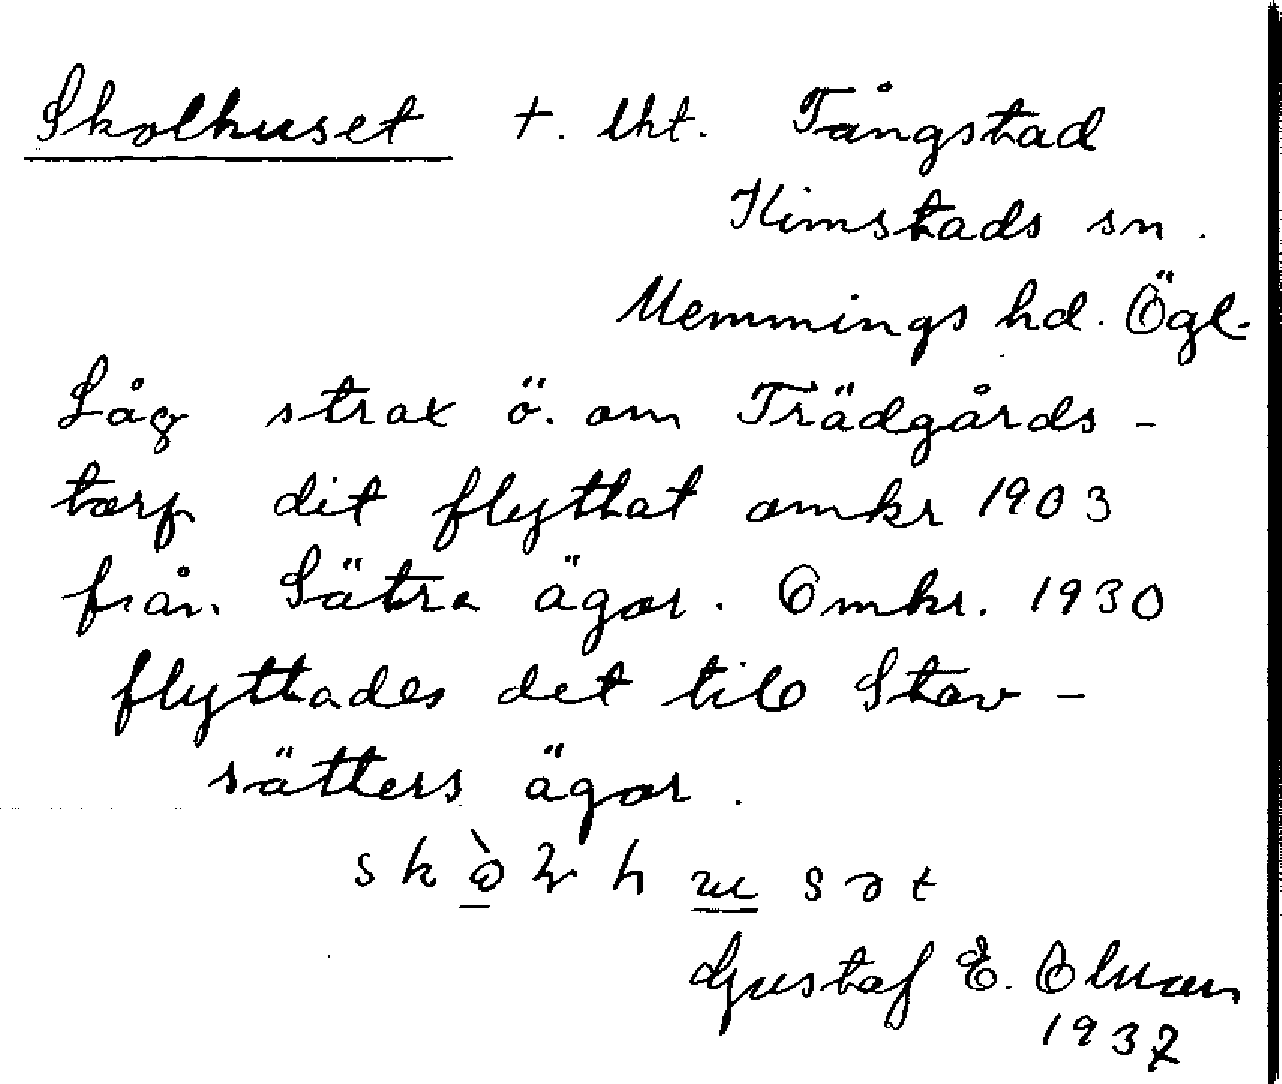 Skolhuset t. lht. Tångstad
Kimstads sn.
Memmings hd. Ögl.
Låg strax ö. om Trädgårds-
torp dit flyttat omkr 1903
från Sätra ägor. Omkr. 1930
flyttades det till Stav-
sätters ägor.
Gustaf E. 
1937